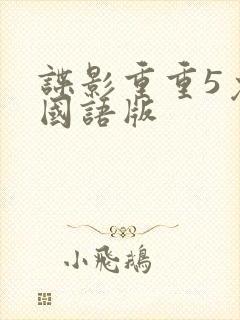 諜影重重5
國語版
小飛鵝